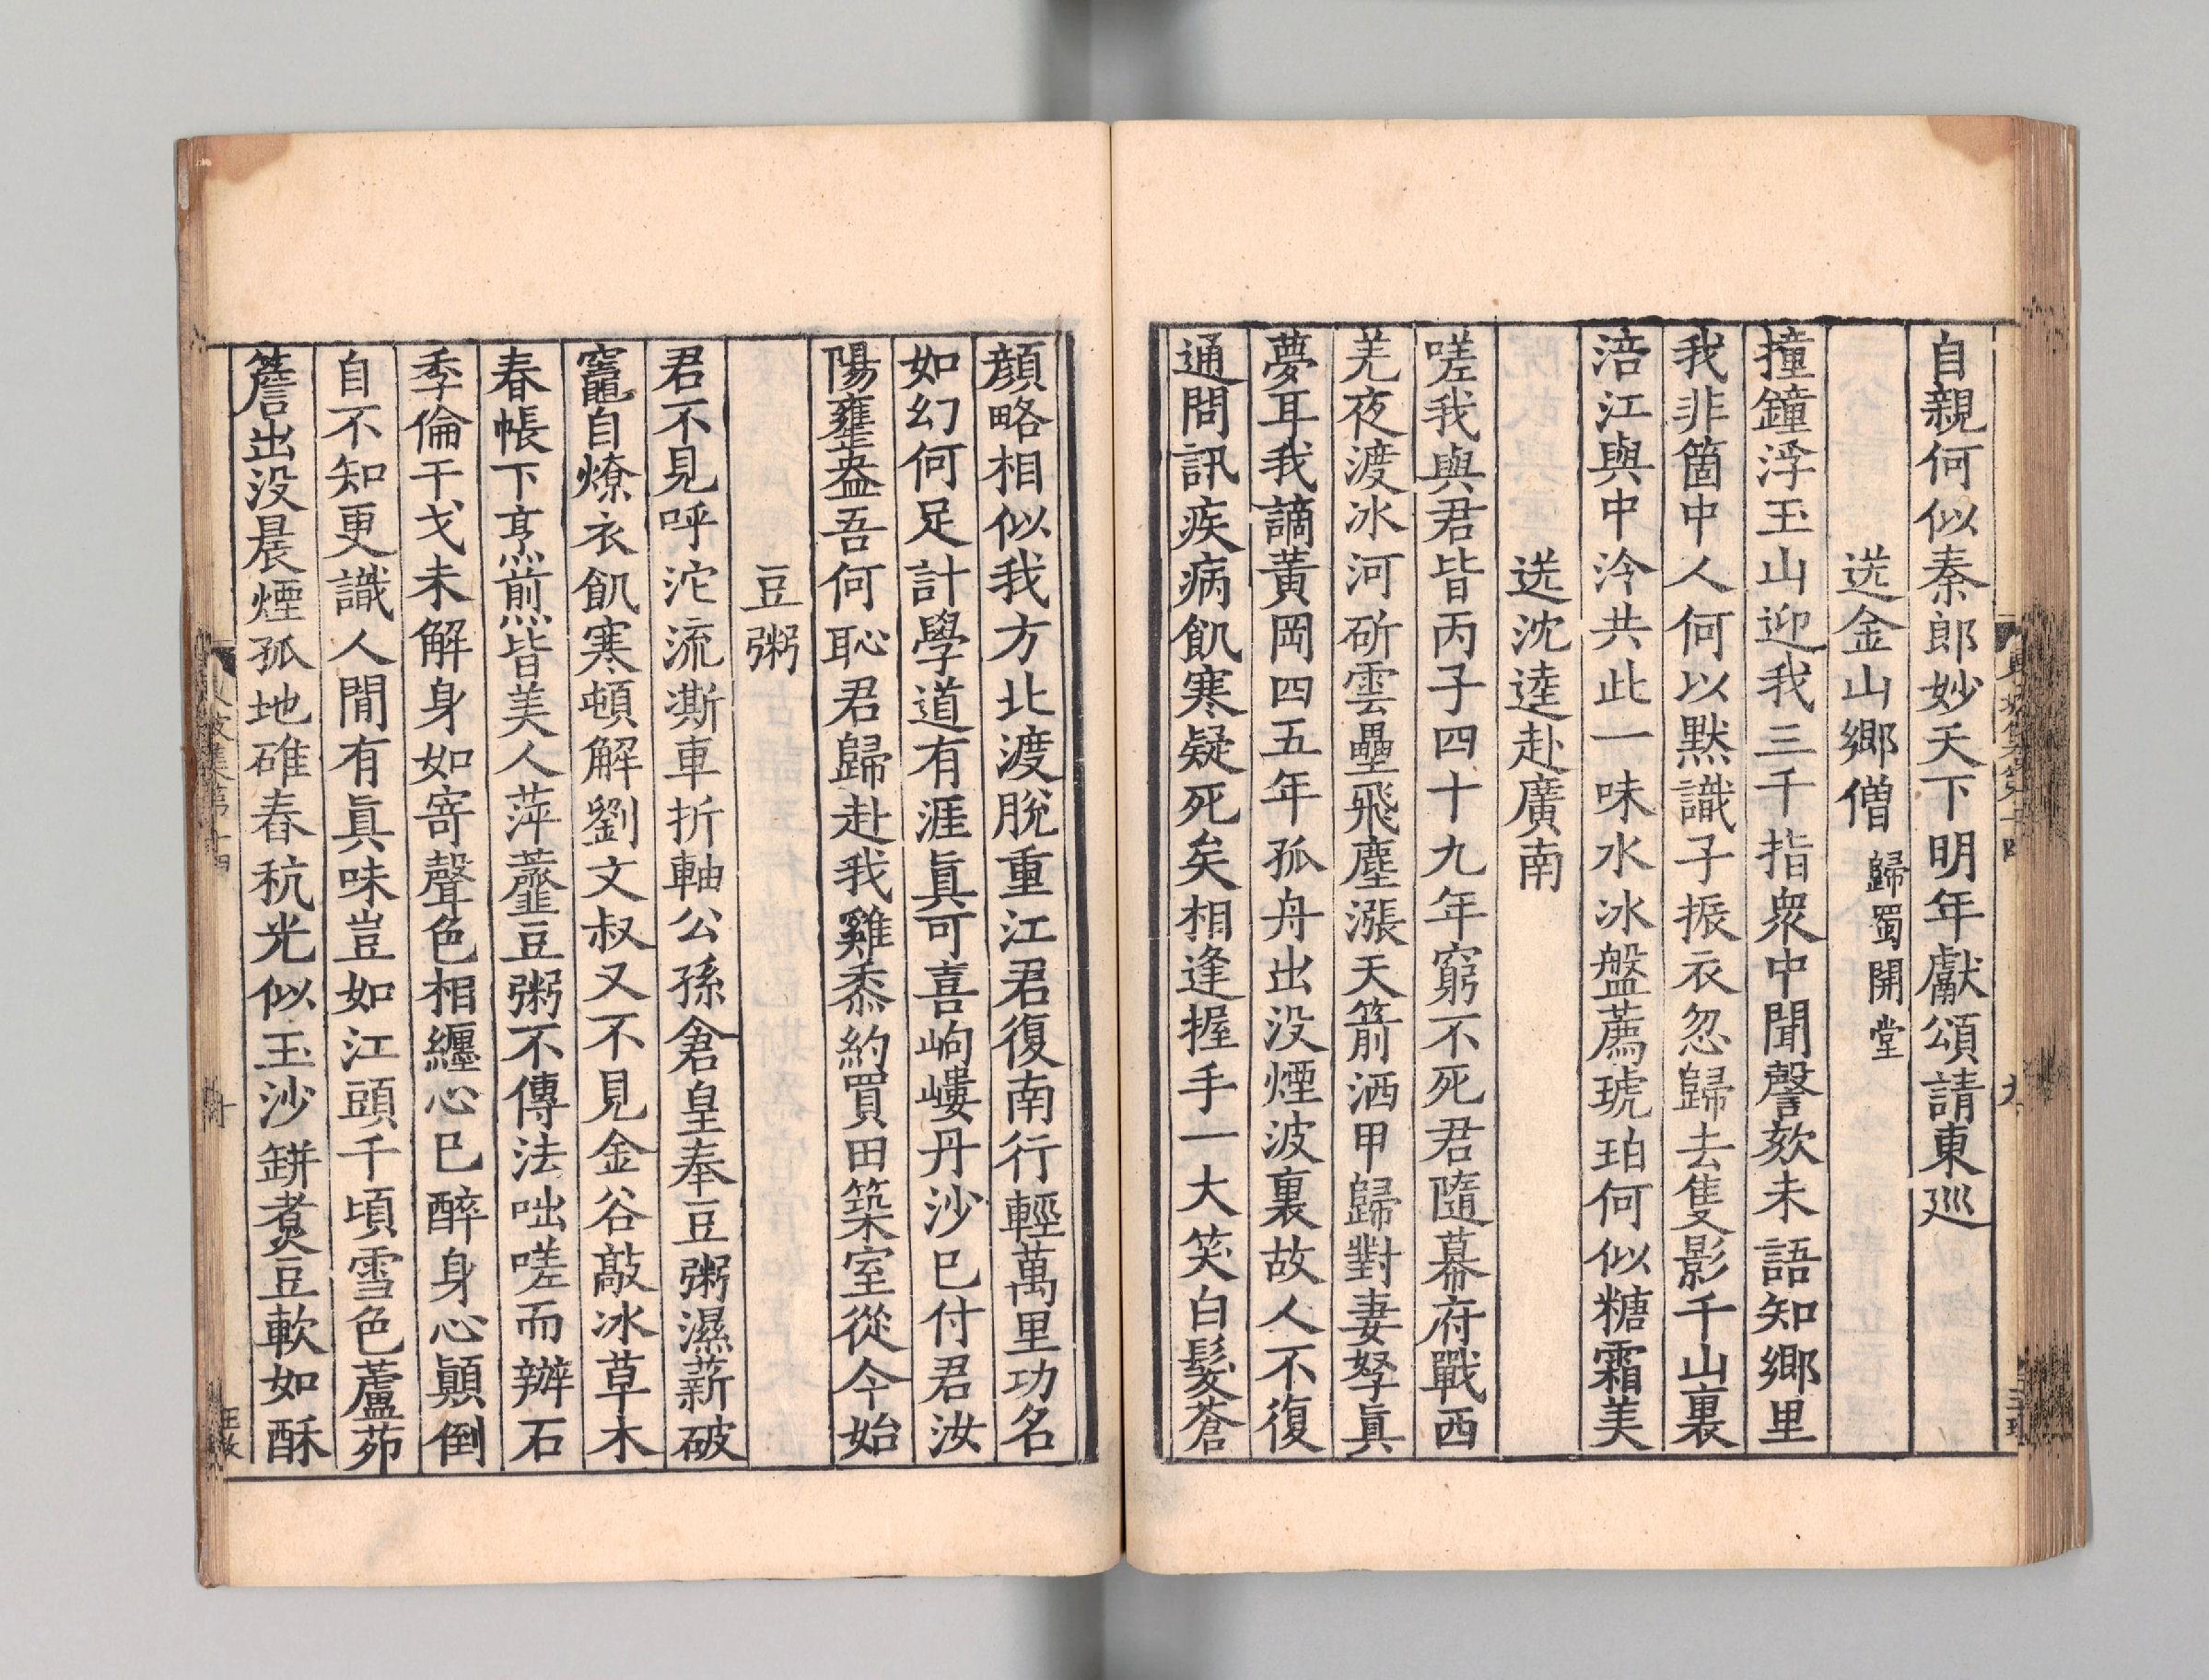 自親何似秦郎妙天下明年獻頌請東巡
送金山鄉僧歸蜀開堂
撞鐘浮玉山迎我三千指衆中聞謦欬未語知鄉里
我非箇中人何以默識子振衣忽歸去隻影千山裏
涪江與中泠共此一味水冰盤薦琥珀何似糖霜美
送沈逵赴廣南
嗟我與君皆丙子四十九年窮不死君隨幕府戰西
羌夜渡冰河斫雲壘飛塵漲天箭洒甲歸對妻孥真
夢耳我謫黃岡四五年孤舟出没煙波裏故人不復
通問訊疾病飢寒疑死矣相逢握手一大笑白髮蒼
顔略相似我方北渡脫重江君復南行輕萬里功名
如幻何足計學道有涯眞可喜岣嶁丹沙巳付君汝
陽甕盎吾何恥君歸赴我雞黍約買田築室從今始
豆粥
君不見呼沱流澌車折軸公孫倉皇奉豆粥濕薪破
竈自燎衣飢寒頓解劉文叔又不見金谷敲冰草木
春帳下烹煎皆美人萍虀豆粥不傳法咄嗟而辦石
季倫干戈未解身如寄聲色相纏心已醉身心顛倒
自不知更識人間有眞味豈如江頭千頃雪色蘆茆
簷出没晨煙孤地碓舂秔光似玉沙缾煮豆軟如酥